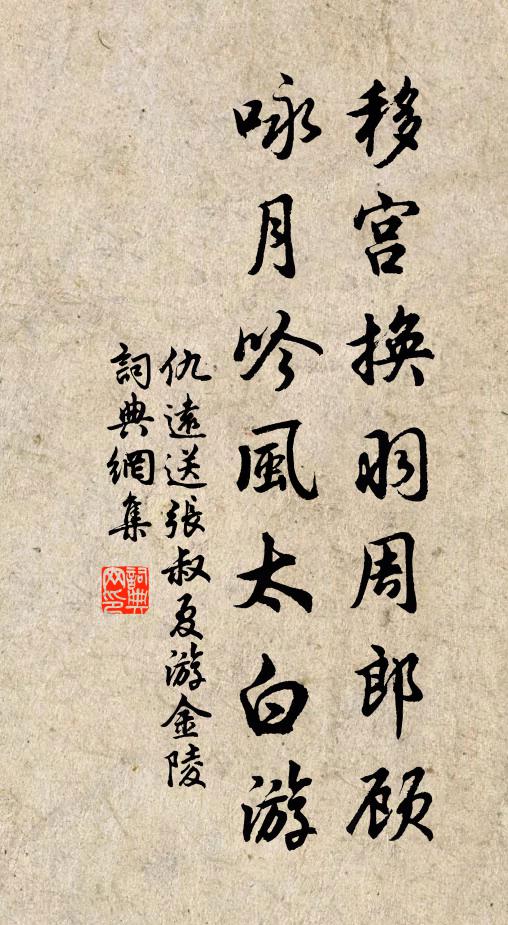 移宫換羽周郎顧
咏月吟風太白游
仇遠送張叔夏游金陵
詞典網集
詞典網印